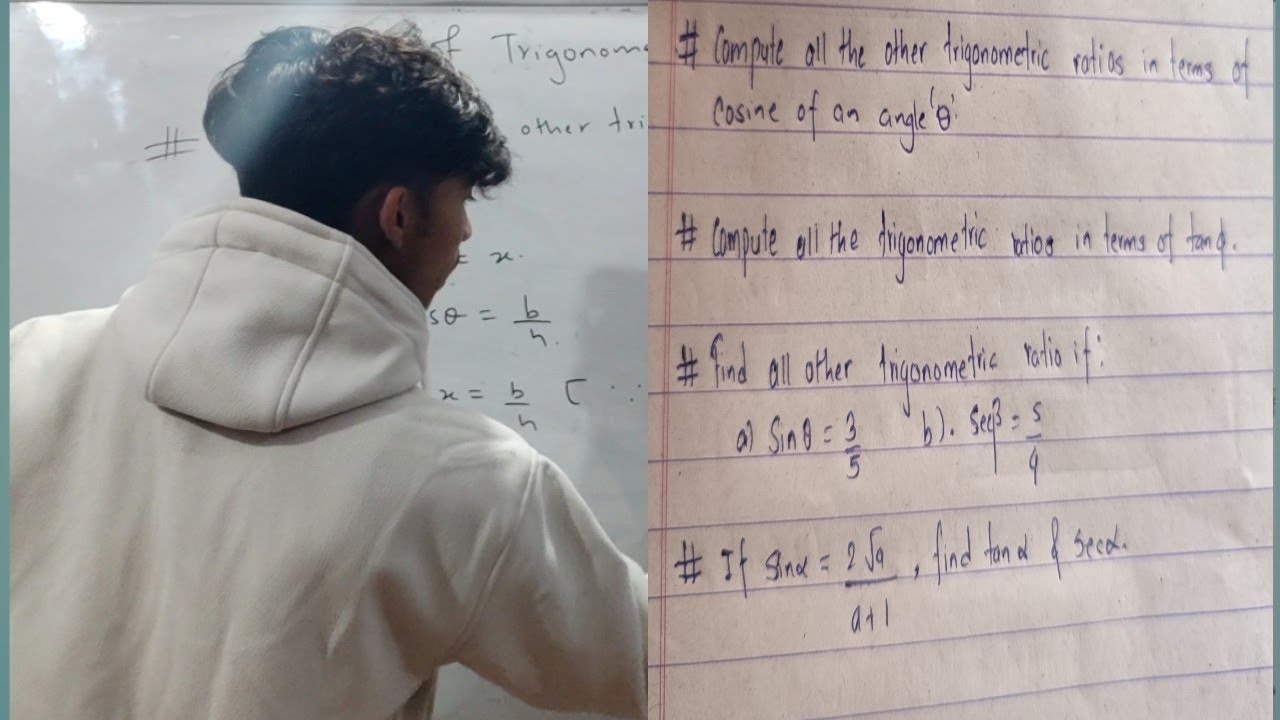 of Trigonome
# other tri
= x.
sθ = b/h.
x = b/h [ ∵
# Compute all the other trigonometric ratios in terms of
Cosine of an angle 'θ'.
# Compute all the trigonometric ratios in terms of tanφ.
# Find all other trigonometric ratio if:
a) Sinθ = 3/5 b). Secβ = 5/4
# If sinα = 2√a/a+1, find tanα & secα.